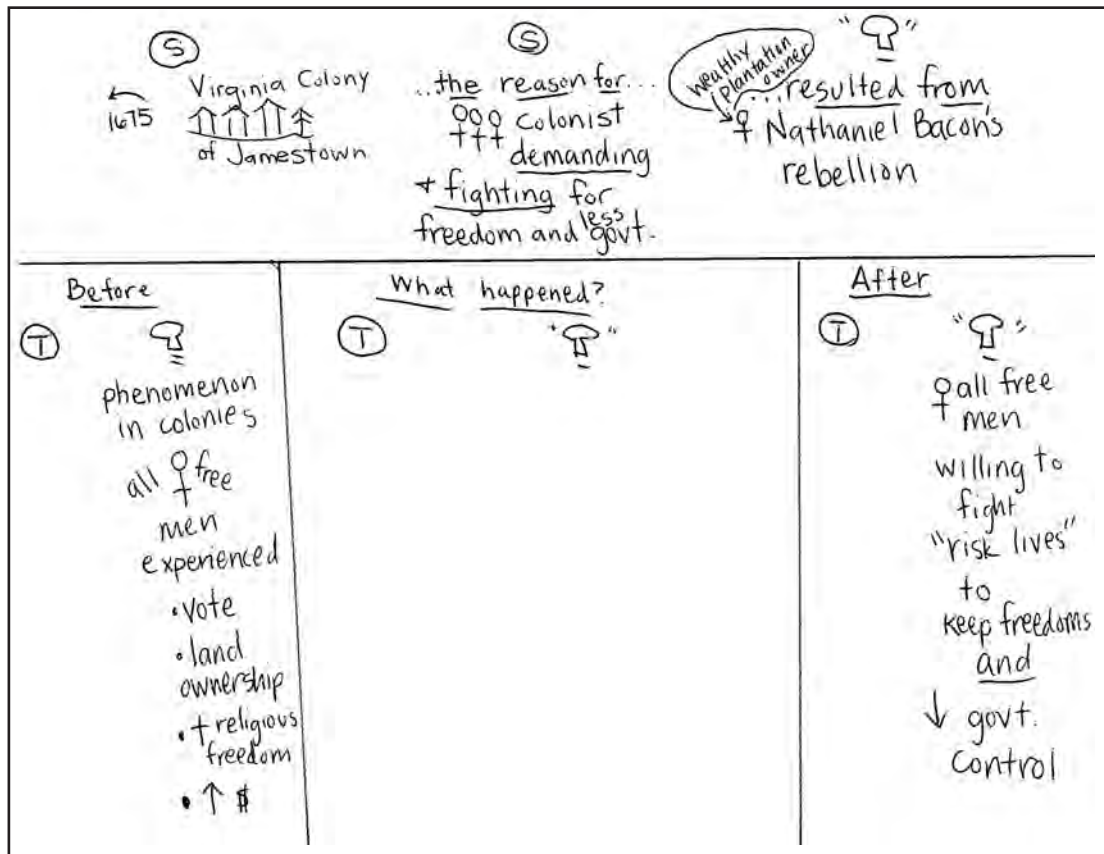 S
1675
Virginia Colony
of Jamestown
S
...the reason for...
colonist
demanding
+ fighting for
freedom and less govt.
Wealthy
plantation
owner
" "
...resulted from
Nathaniel Bacon's
rebellion
Before
T
phenomenon
in colonies
all free
men
experienced
• vote
• land
ownership
• + religious
freedom
• ↑ $
What happened?
T
" "
After
T
" "
all free
men
willing to
fight
"risk lives"
to
keep freedoms
and
↓ govt.
control